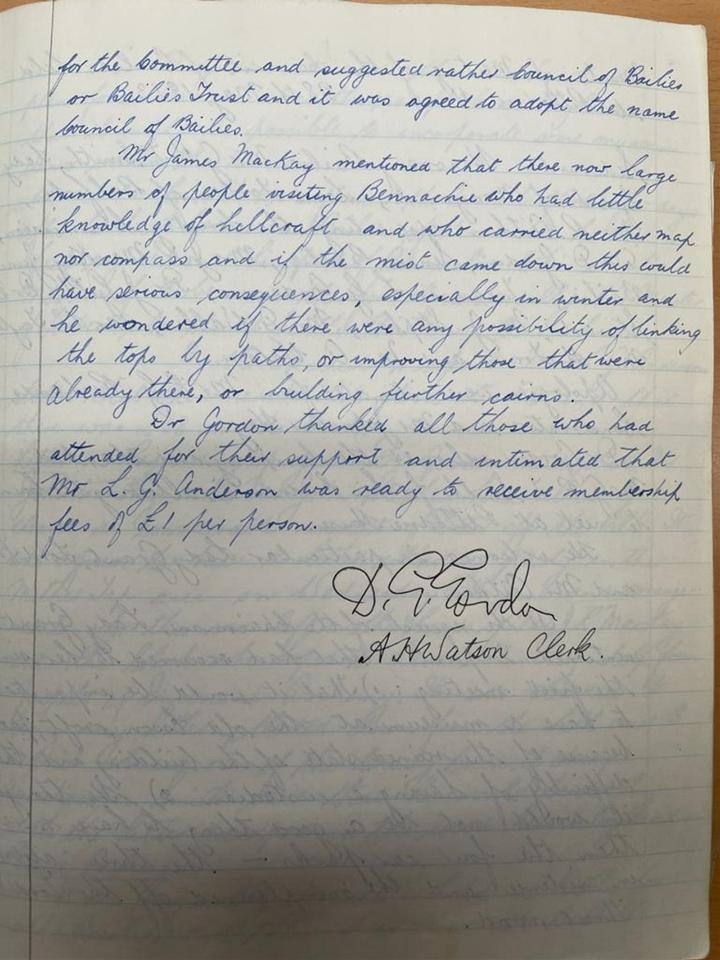 for the Committee and suggested rather Council of Bailies
or Bailies Trust and it was agreed to adopt the name
Council of Bailies.
Mr James MacKay mentioned that there now large
numbers of people visiting Bennachie who had little
knowledge of hillcraft and who carried neither map
nor compass and if the mist came down this could
have serious consequences, especially in winter and
he wondered if there were any possibility of linking
the tops by paths, or improving those that were
already there, or building further cairns.
Dr Gordon thanked all those who had
attended for their support and intimated that
Mr L. G. Anderson was ready to receive membership
fees of £1 per person.
D. G. Gordon
A H Watson Clerk.